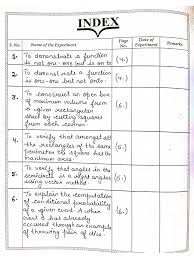 INDEX
S. No. Name of the Experiment Page No. Date of Experiment Remarks
1. To demonstrate a function is not one-one but is onto (4.)
2. To demonstrate a function is one-one but not onto (4.)
3. To construct an open box of maximum volume from a given rectangular sheet by cutting squares from each corner. (5.)
4. To verify that amongst all the rectangles of the same perimeter the square has the maximum area. (5.)
5. To verify that angle in the semicircle is a right angle using vector method. (6.)
6. To explain the computation of conditional probability of a given event A when event B has already occurred through an example of throwing pair of dice. (6.)